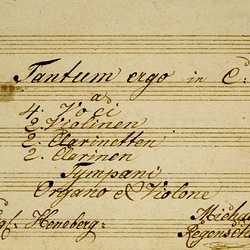 Tantum ergo in C:
a
4. Voci
2 Violinen
2. Clarinetten
2. Clarinen
Tympani
Organo et Violone
Heneberg.
Michae
Regensch